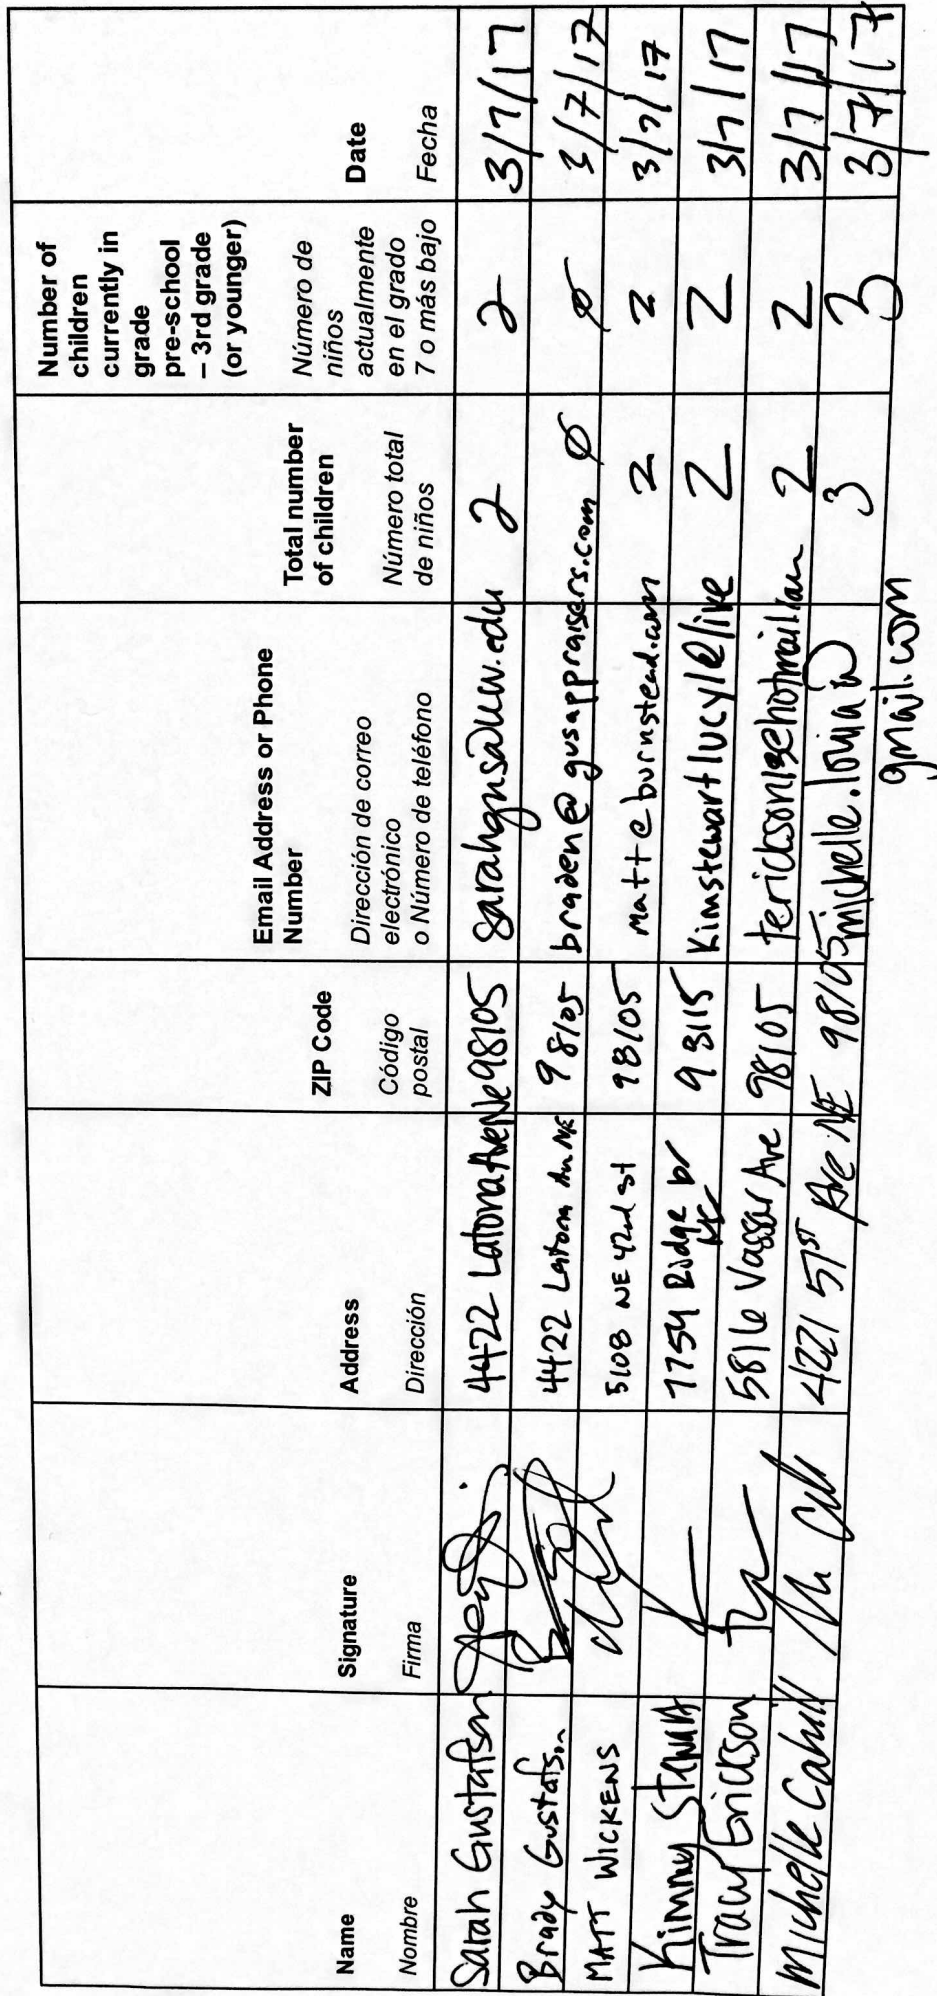 Name
Nombre
Signature
Firma
Address
Dirección
ZIP Code
Código
postal
Email Address or Phone
Number
Dirección de correo
electrónico
o Número de teléfono
Total number
of children
Número total
de niños
Number of
children
currently in
grade
pre-school
– 3rd grade
(or younger)
Número de
niños
actualmente
en el grado
7 o más bajo
Date
Fecha
Sarah Gustafson 4422 Latona Ave Ne 98105 sarahgns@uw.edu 2 2 3/7/17
Brady Gustafson 4422 Latona Av NE 98105 braden@gusappraisers.com Ø Ø 3/7/17
MATT WICKENS 5108 NE 42nd st 98105 matt@burnstead.com 2 2 3/7/17
Kimmy Stewart 7754 Ridge Dr NE 93115 Kimstewartlucy@live 2 2 3/7/17
Tracy Erickson 5816 Vassar Ave 98105 terickson13@hotmail.com 2 2 3/7/17
Michelle Cahill 4221 51ST Ave NE 98105 michelle.loria@ 3 3 3/7/17
gmail.com